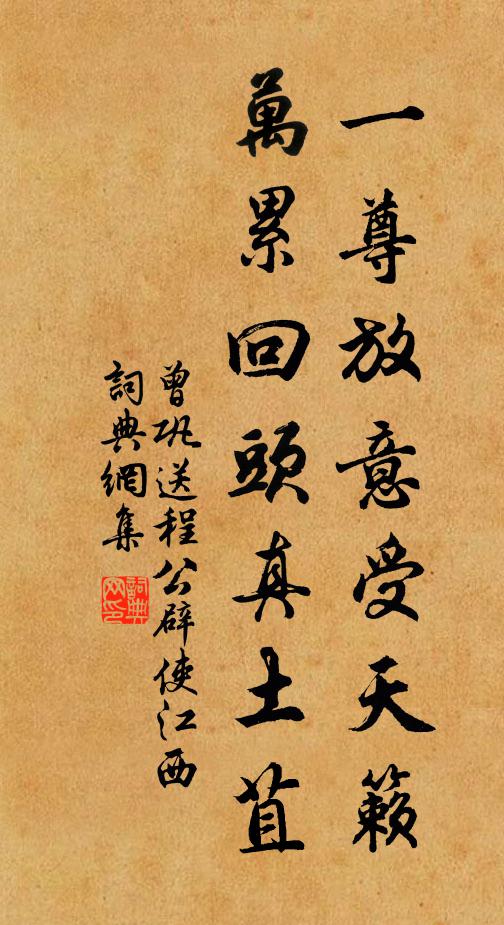 一尊放意受天籟
萬累回頭真土苴
曾巩送程公辟使江西
詞典網集
詞典网印